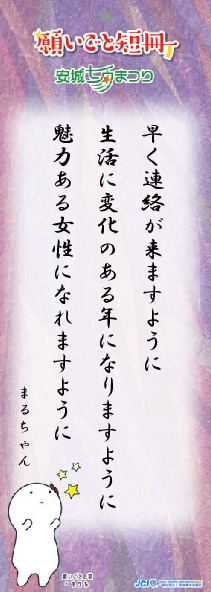 願いごと短冊
安城七夕まつり
早く連絡が来ますように
生活に変化のある年になりますように
魅力ある女性になれますように
まるちゃん
JCI